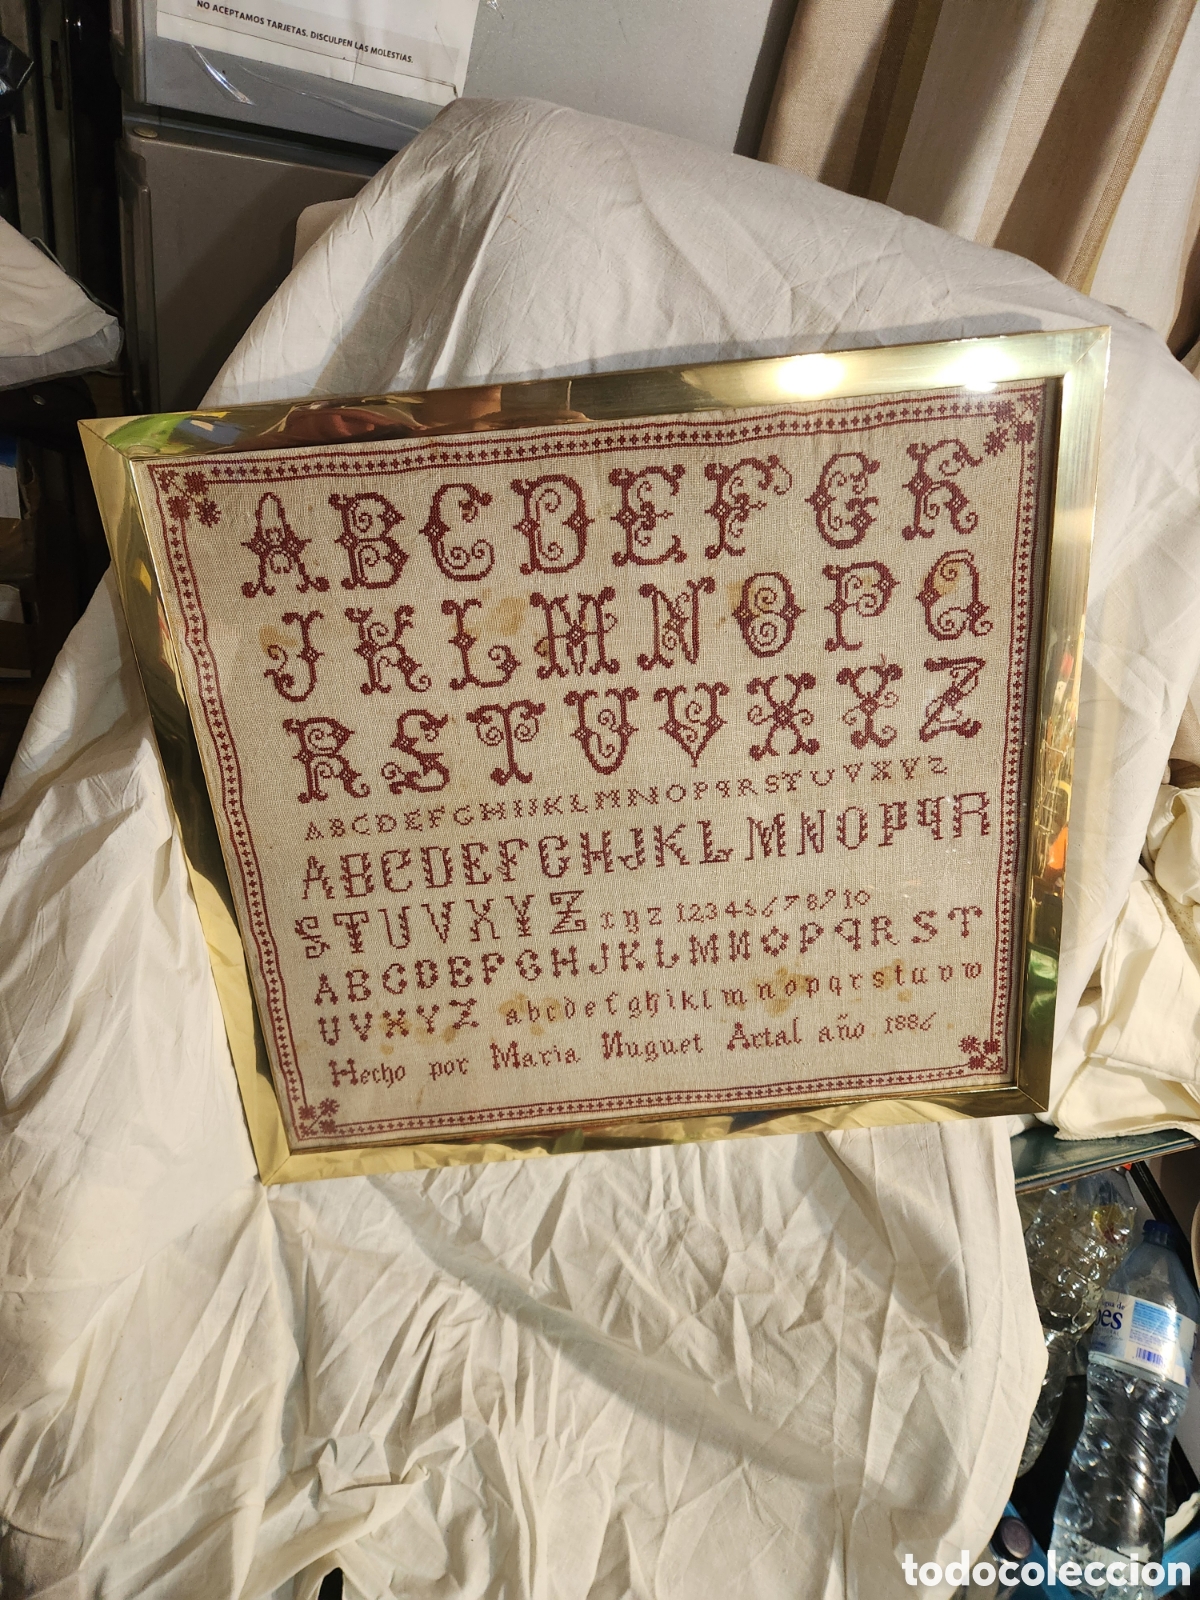 NO ACEPTAMOS TARJETAS. DISCULPEN LAS MOLESTIAS.
A B C D E F G K
J K L M N O P Q
R S T U V X Y Z
A B C D E F G H I J K L M N O P q R S T U V X Y Z
A B C D E F G H J K L M N O P q R
S T U V X Y Z x y z 1 2 3 4 5 6 7 8 9 10
A B C D E F G H J K L M N O P q R S T
U V X Y Z a b c d e f g h i k l m n o p q r s t u v w
Hecho por Maria Nuguet Artal año 1886
agua de
bes
todocoleccion